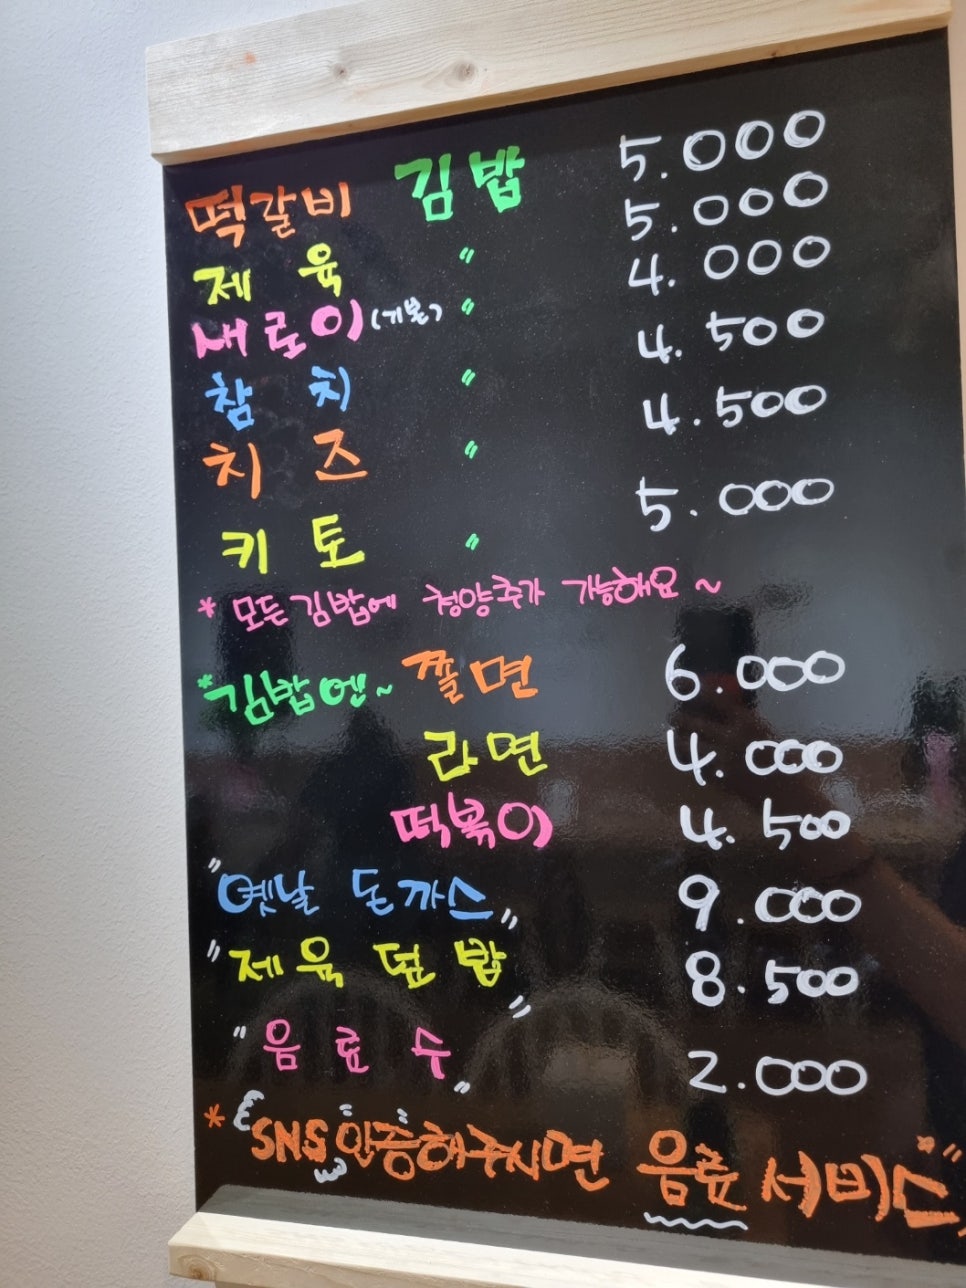 떡갈비 김밥 5.000
제육 〃 5.000
새로이(기본) 〃 4.000
참치 〃 4.500
치즈 〃 4.500
키토 〃 5.000
* 모든김밥에 청양추가 가능해요~
*김밥엔~ 쫄면 6.000
라면 4.000
떡볶이 4.500
"옛날 돈까스" 9.000
"제육덮밥" 8.500
"음료수" 2.000
* SNS인증해주시면 음료 서비스